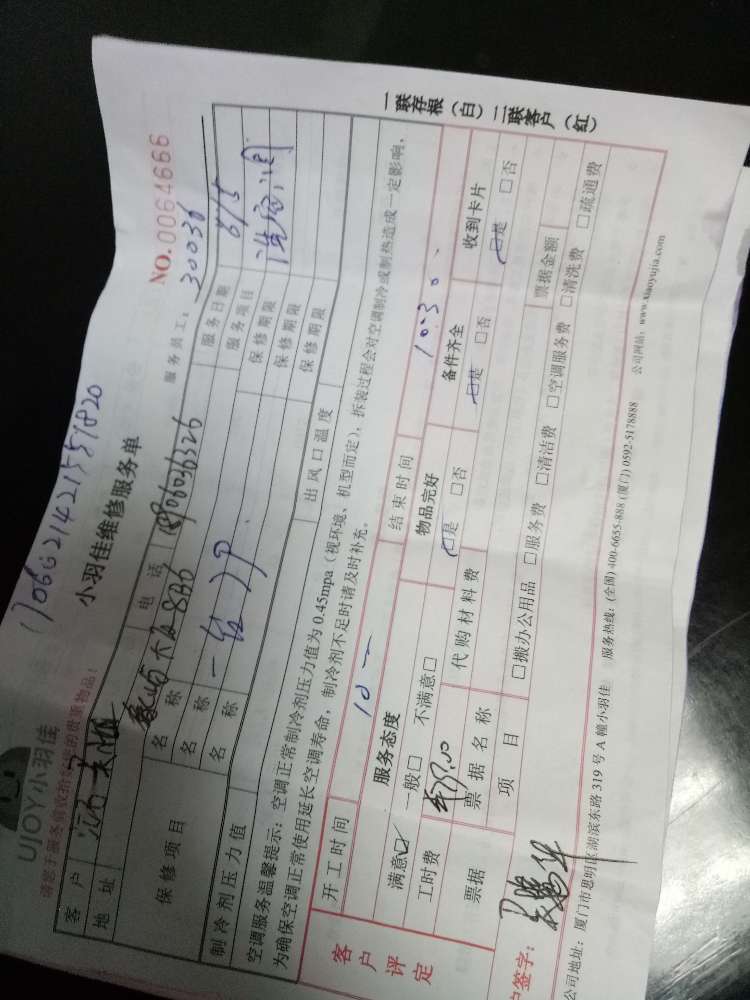 17060214215571820
UJOY小羽佳
小羽佳维修服务单
NO.0064666
请您于服务前收拾好您的贵重物品！
服务员工：30036
客户
电话
服务日期 6/15
地址
服务项目 清空调
保修项目
名称 一台2P
保修期限
名称
保修期限
名称
保修期限
制冷剂压力值
出风口温度
空调服务温馨提示：空调正常制冷剂压力值为0.45mpa（视环境、机型而定），拆装过程会对空调制冷或制热造成一定影响，
为确保空调正常使用延长空调寿命，制冷剂不足时请及时补充。
客户评定
开工时间
结束时间 10:30
服务态度
物品完好
备件齐全
收到卡片
满意☑ 一般□ 不满意□
☑是 □否
☑是 □否
☑是 □否
工时费
代购材料费
票据
票据名称
票据金额
项目
□搬办公用品 □服务费 □清洁费 □空调服务费 □清洗费 □疏通费
户签字：
公司地址：厦门市思明区湖滨东路319号A幢小羽佳 服务热线：(全国) 400-6655-888 (厦门) 0592-5178888 公司网站：www.xiaoyujia.com
一联存根（白）二联客户（红）